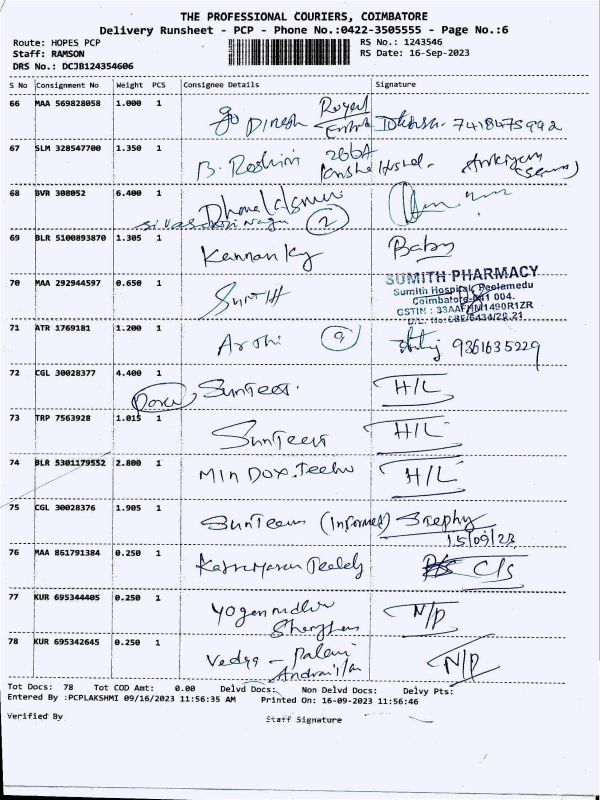 THE PROFESSIONAL COURIERS, COIMBATORE
Delivery Runsheet - PCP - Phone No.:0422-3505555 - Page No.:6
Route: HOPES PCP RS No.: 1243546
Staff: RAMSON RS Date: 16-Sep-2023
DRS No.: DCJB124354606
S No Consignment No Weight PCS Consignee Details Signature
66 MAA 569828058 1.000 1
Dinesh Royal 7418475992
67 SLM 328547700 1.350 1
B. Roshini 266A
68 BVR 308052 6.400 1
2
69 BLR 5100893870 1.305 1
Kannan Ky Baby
70 MAA 292944597 0.650 1
SUMITH PHARMACY
Sumith Hospital, Peelamedu
Coimbatore-641 004.
71 ATR 1769181 1.200 1
9 9361635229
72 CGL 30028377 4.400 1
Sunteer. H/L
73 TRP 7563928 1.015 1
Sunteer H/L
74 BLR 5301179552 2.800 1
MinDox.Techno H/L
75 CGL 30028376 1.905 1
(Informed)
15/09/23
76 MAA 861791384 0.250 1
C/S
77 KUR 695344405 0.250 1
N/P
78 KUR 695342645 0.250 1
Vedya - Palani N/P
Tot Docs: 78 Tot COD Amt: 0.00 Delvd Docs: Non Delvd Docs: Delvy Pts:
Entered By :PCPLAKSHMI 09/16/2023 11:56:35 AM Printed On: 16-09-2023 11:56:46
Verified By Staff Signature